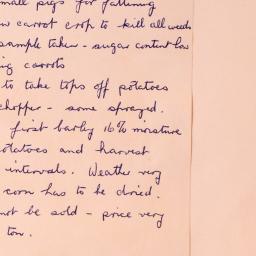 small pigs for fattening
carrot crop to kill all weeds
sample taken - sugar content low
carrots
to take tops off potatoes
chopper - some sprayed.
first barley 16% moisture
potatoes and harvest
intervals. Weather very
corn has to be dried.
not be sold - price very
ton.